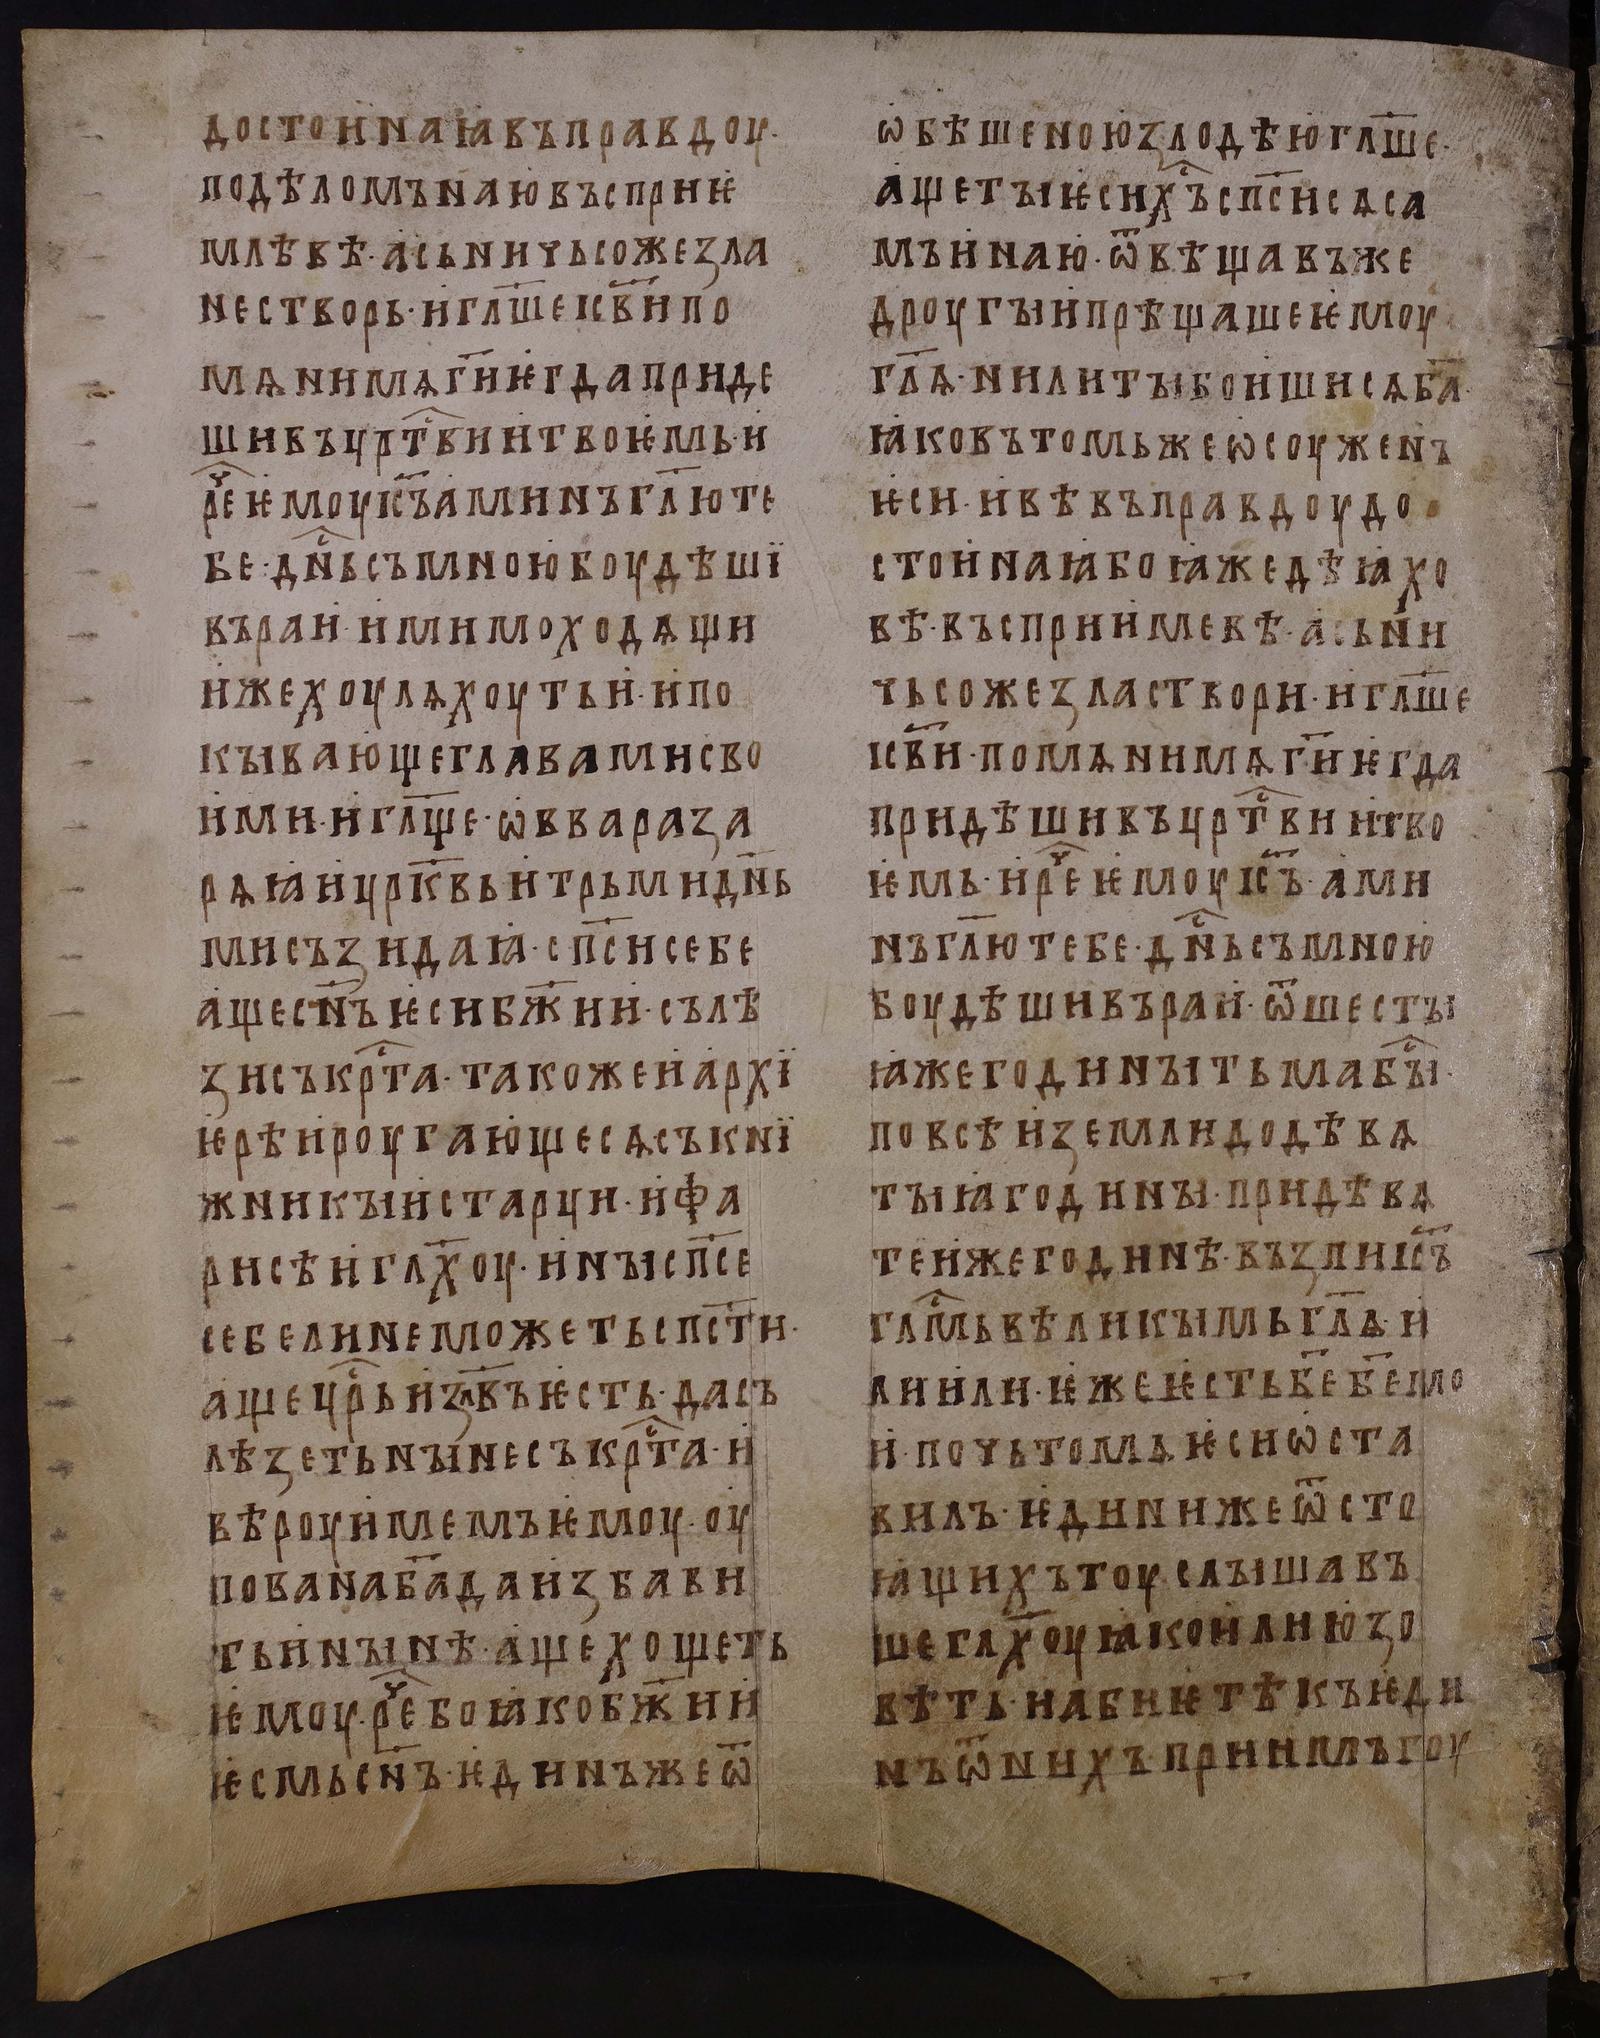 достоинаꙗвъправдоу·
подѣломънаювъсприѥ
млѣвѣ·асьничьсожеꙁла
нестворь·игл҃шеісв҃ипо
мѧнимѧг҃иѥгдаприде
шивъцрт҇виитвоѥмь·и
реч҇ѥмоуіс҃ъаминъгл҃юте
бе:дн҇ьсъмноюбоудѣшї
въраи·имимоходѧщи
ижехоулѧхоутьи·ипо
кываюшеглавамисво
ими·игл҃ще·ѡввараꙁа
рѧꙗицрк҃вьитрьмидн҃ь
мисъꙁидаꙗ·сп҃сисебе
ащесн҃ъѥсибж҃ии·сълѣ
ꙁисъкрт҇а·такожеиархї
ѥрѣируогающесѧсъкнї
жникыистарци·ифа
рисѣигл҃хоу·инысп҃се
себелинеможетьспс҃ти·
ащецр҇ьиꙁл҃въѥсть·дасъ
лѣꙁетьнынесъкрт҇а·и
вѣроуимемъѥмоу·оу
пованаб҃адаиꙁбави
тьинынѣ·ащехощеть
ѥмоу·реч҇боꙗкобж҃ии
ѥсмьсн҃ъ·ѥдинъжеѿ
ѡбѣшеноюꙁлодѣюгл҃ше·
ащетыѥсихъ҇сп҃сисѧса
мъинаю·ѿвѣщавъже
дроугыипрѣщашеѥмоу
гл҃ѧ·нилитыбоишисѧб҃а·
ꙗковътомьжеѡсоуженъ
ѥси·ивѣвъправдоудо
стоинаꙗбоꙗжедѣꙗхо
вѣ·въсприимевѣ·асьни
чьсожеꙁластвори·игл҃ше
ісв҃и·помѧнимѧг҃иѥгда
придѣшивъцрт҇виитво
ѥмь·иреч҇ѥмоуіс҃ъ·ами
нъгл҃ютебе·дн҇ьсъмною
боудѣшивъраи·ѿшесты
ꙗжегодинытьмабы҇·
повсѣиꙁемлидодѣвѧ
тыꙗгодины·придѣвѧ
теижегодинѣ·въꙁпиіс҃ъ
глм҇ьвѣликымьгл҃ѧ·и
лиили·ѥжеѥстьб҃еб҃емо
и·почьтомѧѥсиѡста
вилъ·ѥдинижеѿсто
ꙗщихътоуслышавъ
шегл҃хоуꙗкоилиюꙁо
вѣть·иабиѥтѣкъѥди
нъѿнихъ·приимъгоу